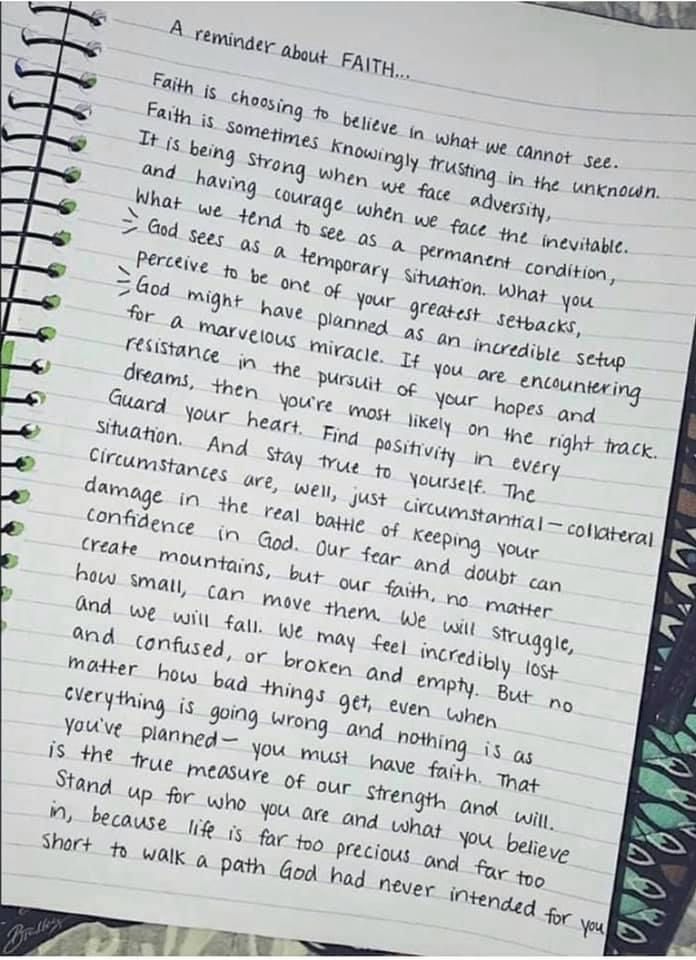 A reminder about FAITH...
Faith is choosing to believe in what we cannot see.
Faith is sometimes knowingly trusting in the unknown.
It is being strong when we face adversity,
and having courage when we face the inevitable.
What we tend to see as a permanent condition,
God sees as a temporary situation. What you
perceive to be one of your greatest setbacks,
God might have planned as an incredible setup
for a marvelous miracle. If you are encountering
resistance in the pursuit of your hopes and
dreams, then you're most likely on the right track.
Guard your heart. Find positivity in every
situation. And stay true to yourself. The
circumstances are, well, just circumstantial — collateral
damage in the real battle of keeping your
confidence in God. Our fear and doubt can
create mountains, but our faith, no matter
how small, can move them. We will struggle,
and we will fall. We may feel incredibly lost
and confused, or broken and empty. But no
matter how bad things get, even when
everything is going wrong and nothing is as
you've planned — you must have faith. That
is the true measure of our strength and will.
Stand up for who you are and what you believe
in, because life is far too precious and far too
short to walk a path God had never intended for you